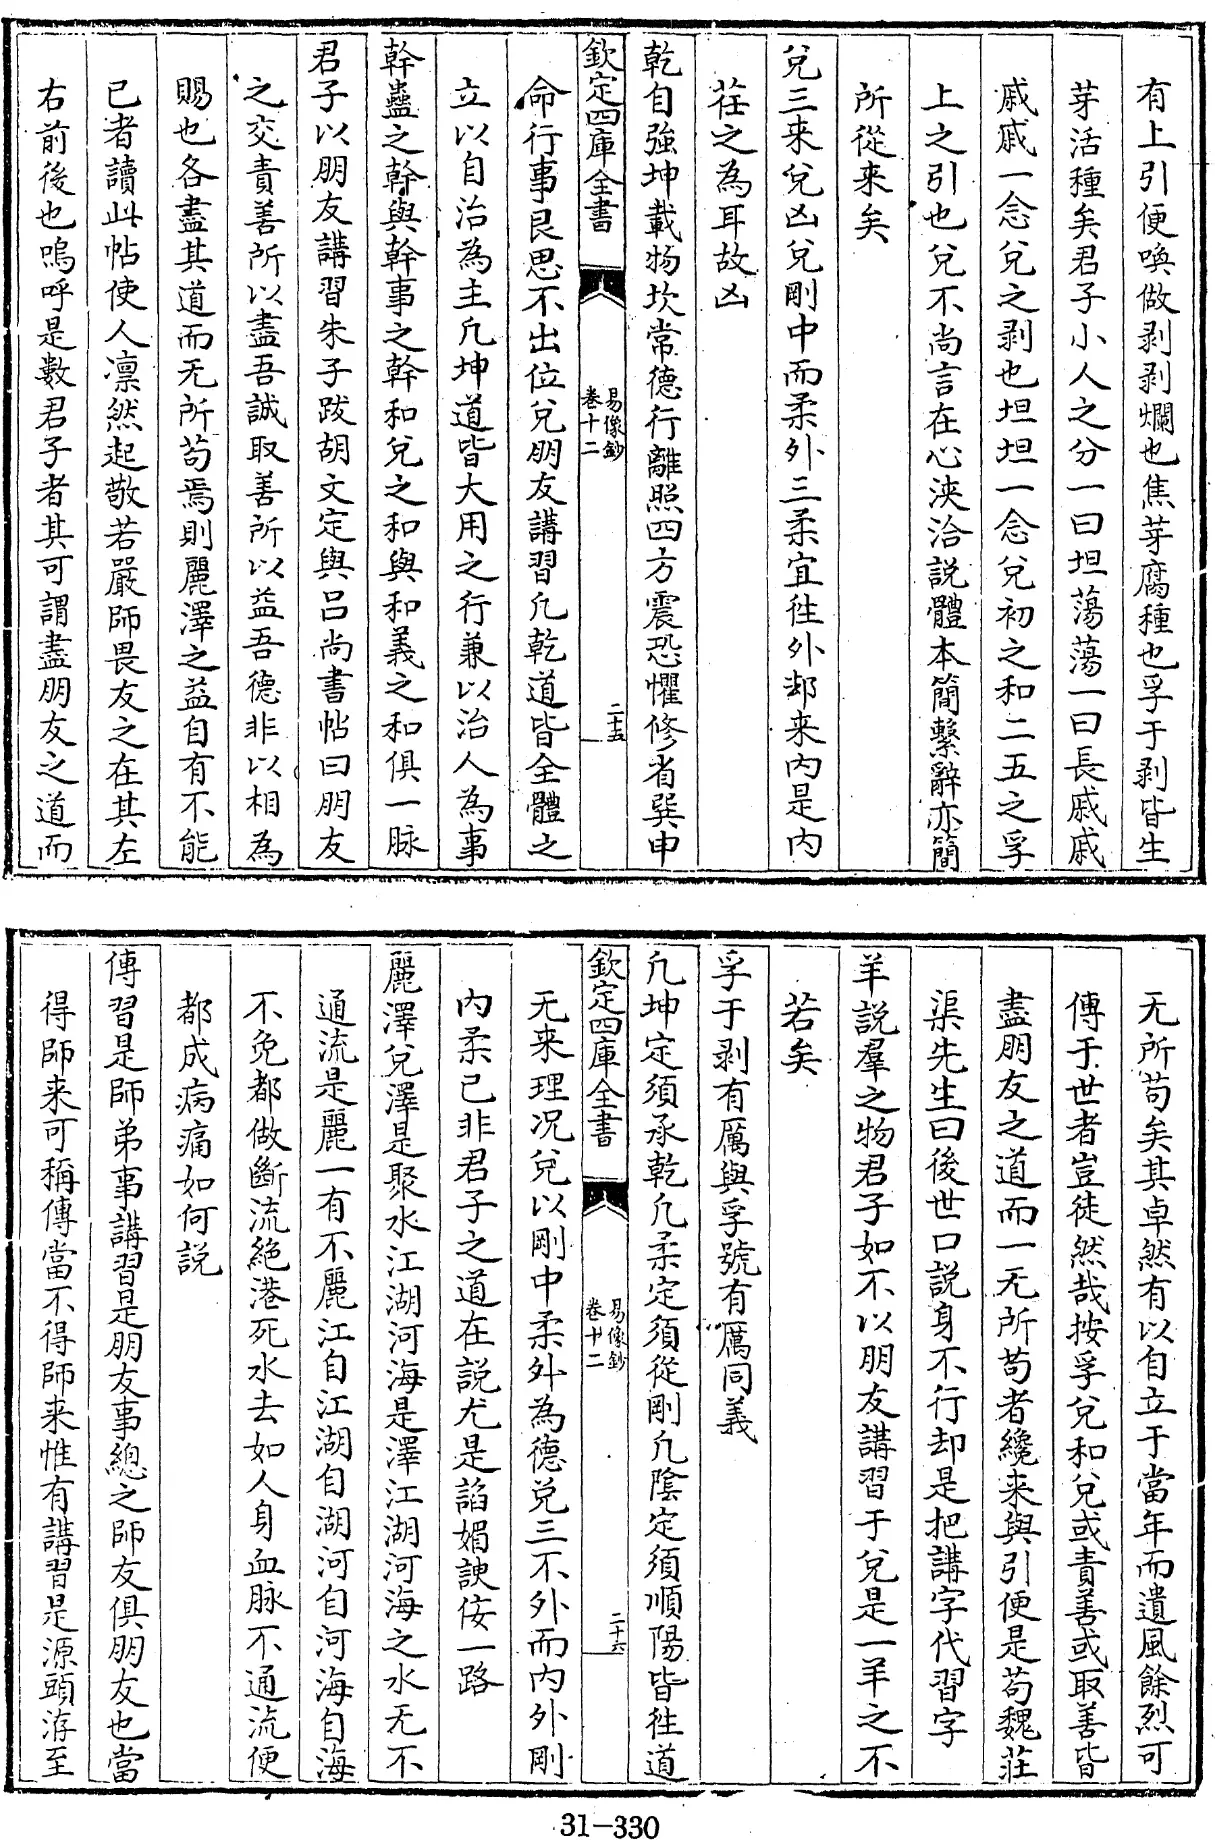 有上引便喚做剥剥爛也焦芽腐種也孚于剥皆生
芽活種矣君子小人之分一曰坦蕩蕩一曰長戚戚
戚戚一念兌之剥也坦坦一念兌初之和二五之孚
上之引也兌不尚言在心浹洽説體本簡繫辭亦簡
所從来矣
兌三来兌凶兌剛中而柔外三柔宜徃外却来内是内
茬之為耳故凶
乾自強坤載物坎常德行離照四方震恐懼修省巽申
欽定四庫全書
易像鈔
卷十二
二十五
命行事艮思不出位兌朋友講習凡乾道皆全體之
立以自治為主凡坤道皆大用之行兼以治人為事
幹蠱之幹與幹事之幹和兌之和與和義之和俱一脉
君子以朋友講習朱子跋胡文定與吕尚書帖曰朋友
之交責善所以盡吾誠取善所以益吾德非以相為
賜也各盡其道而无所苟焉則麗澤之益自有不能
已者讀此帖使人凛然起敬若嚴師畏友之在其左
右前後也嗚呼是數君子者其可謂盡朋友之道而
无所苟矣其卓然有以自立于當年而遺風餘烈可
傳于世者豈徒然哉按孚兌和兌或責善或取善皆
盡朋友之道而一无所苟者纔来與引便是苟魏莊
渠先生曰後世口説身不行却是把講字代習字
羊説羣之物君子如不以朋友講習于兌是一羊之不
若矣
孚于剥有厲與孚號有厲同義
凡坤定須承乾凡柔定須從剛凡陰定須順陽皆徃道
欽定四庫全書
易像鈔
卷十二
二十六
无来理况兌以剛中柔外為德兌三不外而内外剛
内柔已非君子之道在説尤是諂媚諛佞一路
麗澤兌澤是聚水江湖河海是澤江湖河海之水无不
通流是麗一有不麗江自江湖自湖河自河海自海
不免都做斷流絶港死水去如人身血脉不通流便
都成病痛如何説
傳習是師弟事講習是朋友事總之師友俱朋友也當
得師来可稱傳當不得師来惟有講習是源頭洊至
31-330